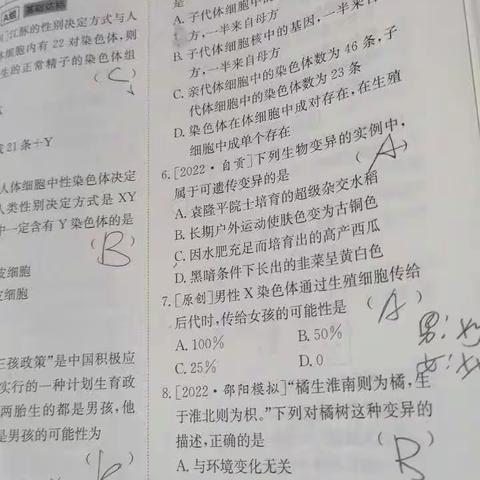 A组 基础达标
江豚的性别决定方式与人
体细胞内有 22 对染色体,则
生的正常精子的染色体组
(C)
21 条+Y
人体细胞中性染色体决定
人类性别决定方式是 XY
中一定含有 Y 染色体的是
(B)
皮细胞
细胞
三孩政策”是中国积极应
实行的一种计划生育政
两胎生的都是男孩,他
是男孩的可能性为
是
A. 子代体细胞中的
方,一半来自母方
B. 子代体细胞核中的基因,一半来自
方,一半来自母方
C. 亲代体细胞中的染色体数为 46 条,子
代体细胞中的染色体数为 23 条
D. 染色体在体细胞中成对存在,在生殖
细胞中成单个存在
6. [2022·自贡]下列生物变异的实例中,
属于可遗传变异的是 (A)
A. 袁隆平院士培育的超级杂交水稻
B. 长期户外运动使肤色变为古铜色
C. 因水肥充足而培育出的高产西瓜
D. 黑暗条件下长出的韭菜呈黄白色
7. [原创]男性 X 染色体通过生殖细胞传给
后代时,传给女孩的可能性是 (A)
A. 100% B. 50%
C. 25% D. 0
男:
女:
8. [2022·邵阳模拟]“橘生淮南则为橘,生
于淮北则为枳。”下列对橘树这种变异的
描述,正确的是 (B)
A. 与环境变化无关